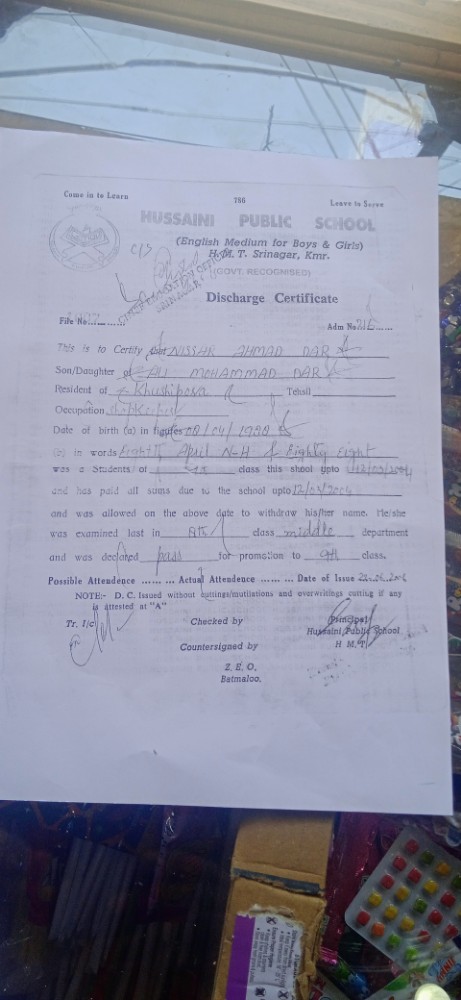 Come in to Learn 786 Leave to Serve
HUSSAINI PUBLIC SCHOOL
(English Medium for Boys & Girls)
H.M.T. Srinagar, Kmr.
(GOVT. RECOGNISED)
CHIEF EDUCATION OFFICER
SRINAGAR
Discharge Certificate
File No. Adm No.
This is to Certify that NISSAR AHMAD DAR
Son/Daughter of ALI MOHAMMAD DAR
Resident of Khushipora Tehsil
Occupation Shopkeeper
Date of birth (a) in figures 08/04/1988
(b) in words Eighth April N-H & Eighty Eight
was a Students of class this shool upto 12/03/2004
and has paid all sums due to the school upto 12/03/2004
and was allowed on the above date to withdraw his/her name. He/she
was examined last in 8th class middle department
and was declared pass for promotion to 9th class.
Possible Attendence ....... Actual Attendence ....... Date of Issue
NOTE:- D. C. Issued without cuttings/mutilations and overwritings cutting if any
is attested at "A"
Tr. I/c Checked by Principal
Hussaini Public School
Countersigned by H M T
Z. E. O,
Batmaloo.